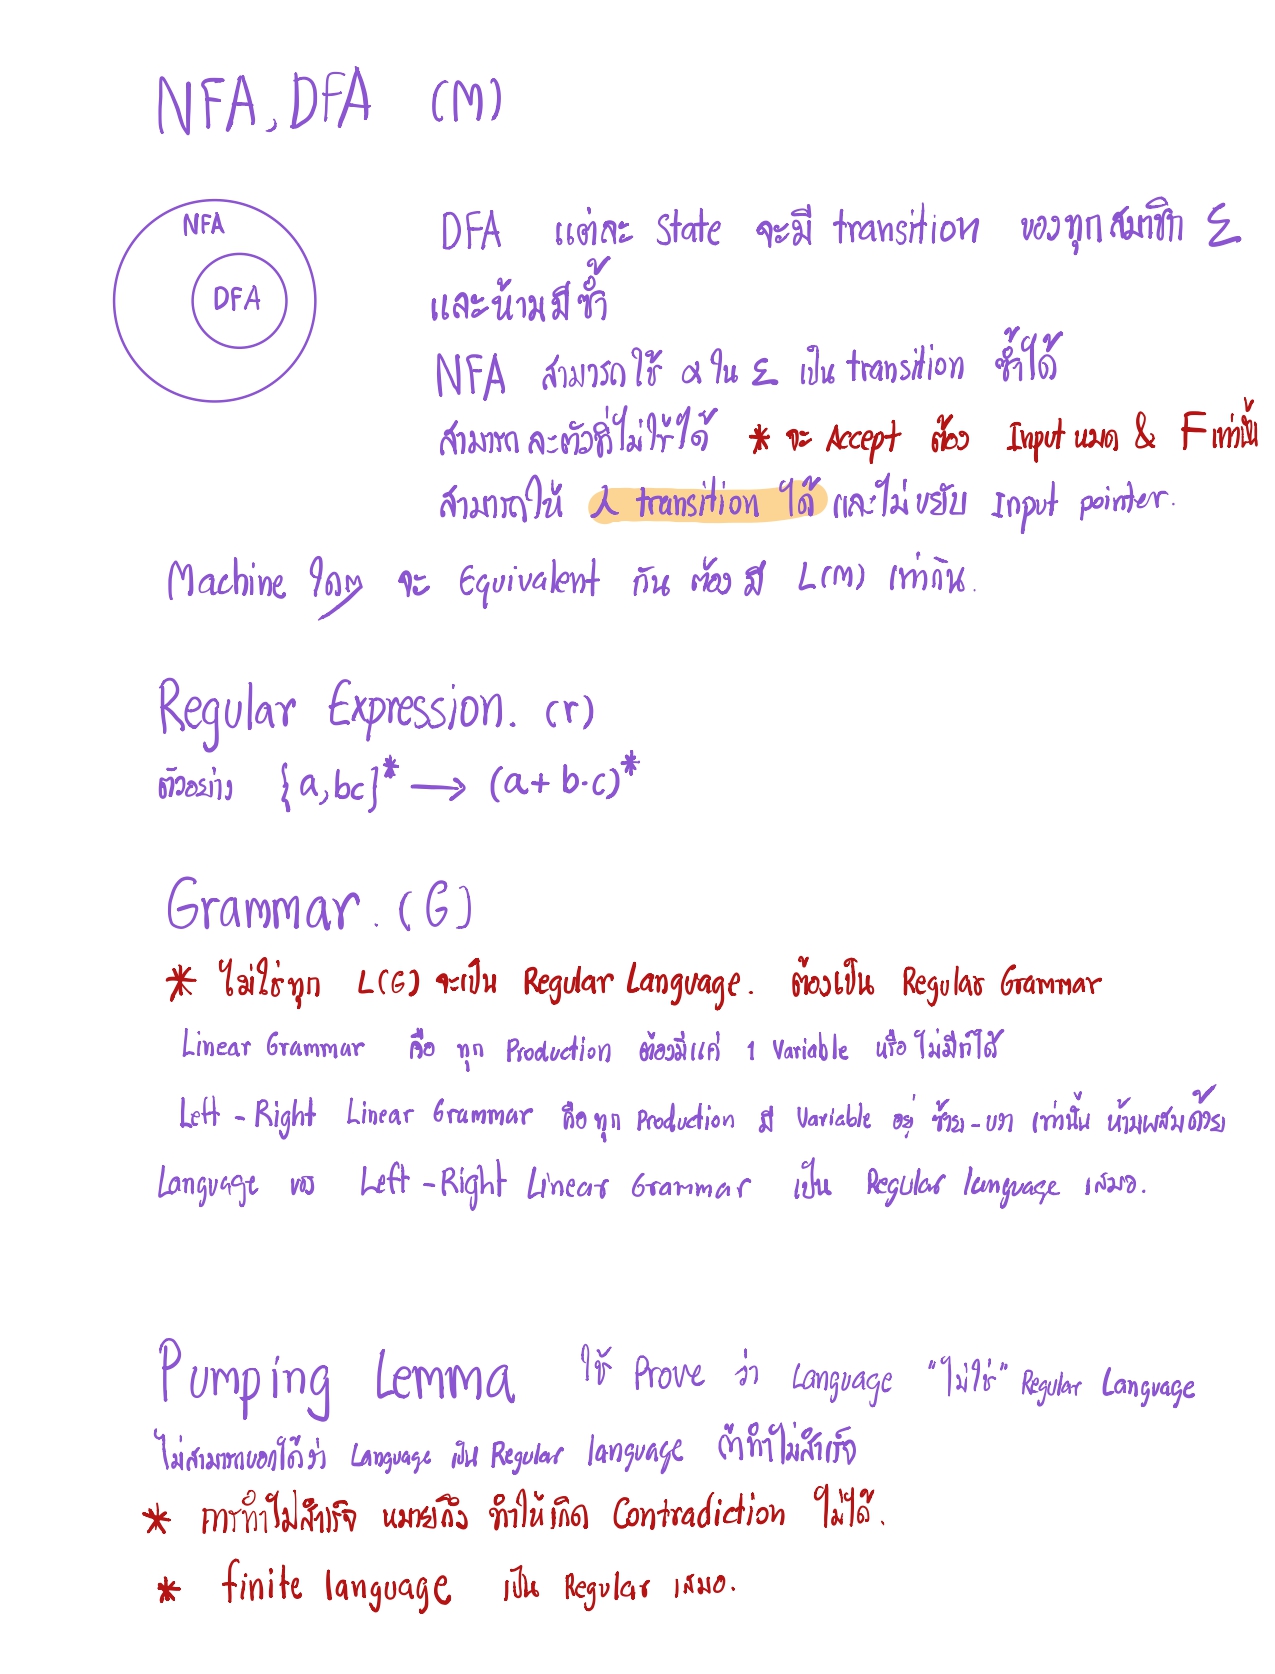 NFA, DFA (M)
NFA
DFA
DFA แต่ละ State จะมี transition ของทุกสมาชิก Σ
และห้ามมีซ้ำ
NFA สามารถใช้ α ใน Σ เป็น transition ซ้ำได้
สามารถละตัวที่ไม่ใช้ได้ * จะ Accept ต้อง Input หมด & F เท่านั้น
สามารถให้ λ transition ได้ และไม่ขยับ Input pointer.
Machine ใดๆ จะ Equivalent กัน ต้องมี L(M) เท่ากัน.
Regular Expression. (r)
ตัวอย่าง {a, bc}* → (a + b·c)*
Grammar. (G)
* ไม่ใช่ทุก L(G) จะเป็น Regular Language. ต้องเป็น Regular Grammar
Linear Grammar คือ ทุก Production ต้องมีแค่ 1 Variable หรือไม่มีก็ได้
Left - Right Linear Grammar คือทุก Production มี Variable อยู่ ซ้าย - ขวา เท่านั้น ห้ามผสมด้วย
Language ของ Left - Right Linear Grammar เป็น Regular language เสมอ.
Pumping Lemma ใช้ Prove ว่า Language "ไม่ใช่" Regular Language
ไม่สามารถบอกได้ว่า Language เป็น Regular language ถ้าทำไม่สำเร็จ
* การทำไม่สำเร็จ หมายถึง ทำให้เกิด Contradiction ไม่ได้.
* finite language เป็น Regular เสมอ.